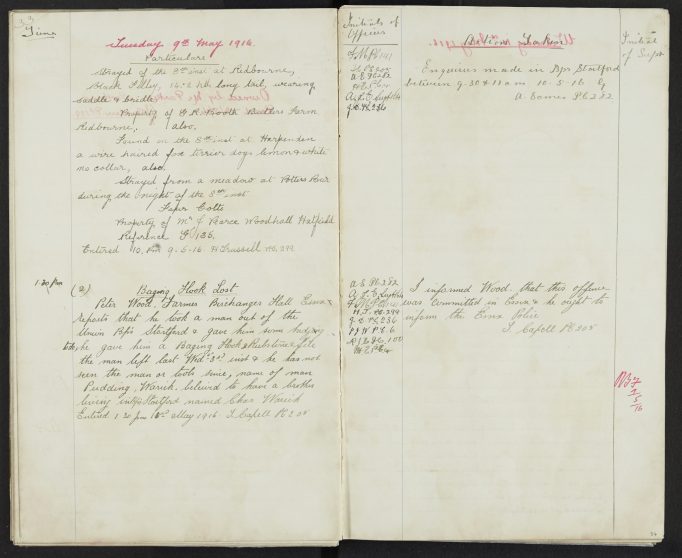 Time
Tuesday 9th May 1916.
Particulars
Strayed of the 8th inst at Redbourne,
Black Filley, 14.2 hh long tail, wearing
saddle & bridle,
Property of G. R. Booth Butlers Farm
Redbourne, also.
Found on the 8th inst at Harpenden
a wire haired fox terrier dog, lemon & white
no collar, also.
Strayed from a meadow at Potters Bar
during the night of the 8th inst
Four Colts
Property of Mr J Pearce Woodhall Hatfield
Reference 126.
Entered 10. pm 9-5-16. H Trussell PC 299
1.30 pm
(2) Baging Hook Lost
Peter Wood Farmer Birchanger Hall Essex
reports that he took a man out of the
Union Bps Stortford & gave him some
he gave him a Baging Hook & Rubstone & file
the man left last Wed. 3rd inst & he has not
seen the man or tools since, name of man
Pudding, believed to have a brother
living in Bps Stortford named Chas
Entered 1.30 pm 10th May 1916. T. Capell PC 205
Initials of
Officer
A S PC 282
PC 299
PC 236
P.S. 6
Action Taken
Enquiries made in Bps Stortford
between 9-30 & 11 am 10-5-16 by
A. Somes PC 282
I informed Wood that this offence
was Committed in Essex & he ought to
inform the Essex Police
T. Capell PC 205
Initial
of Supt
5
16